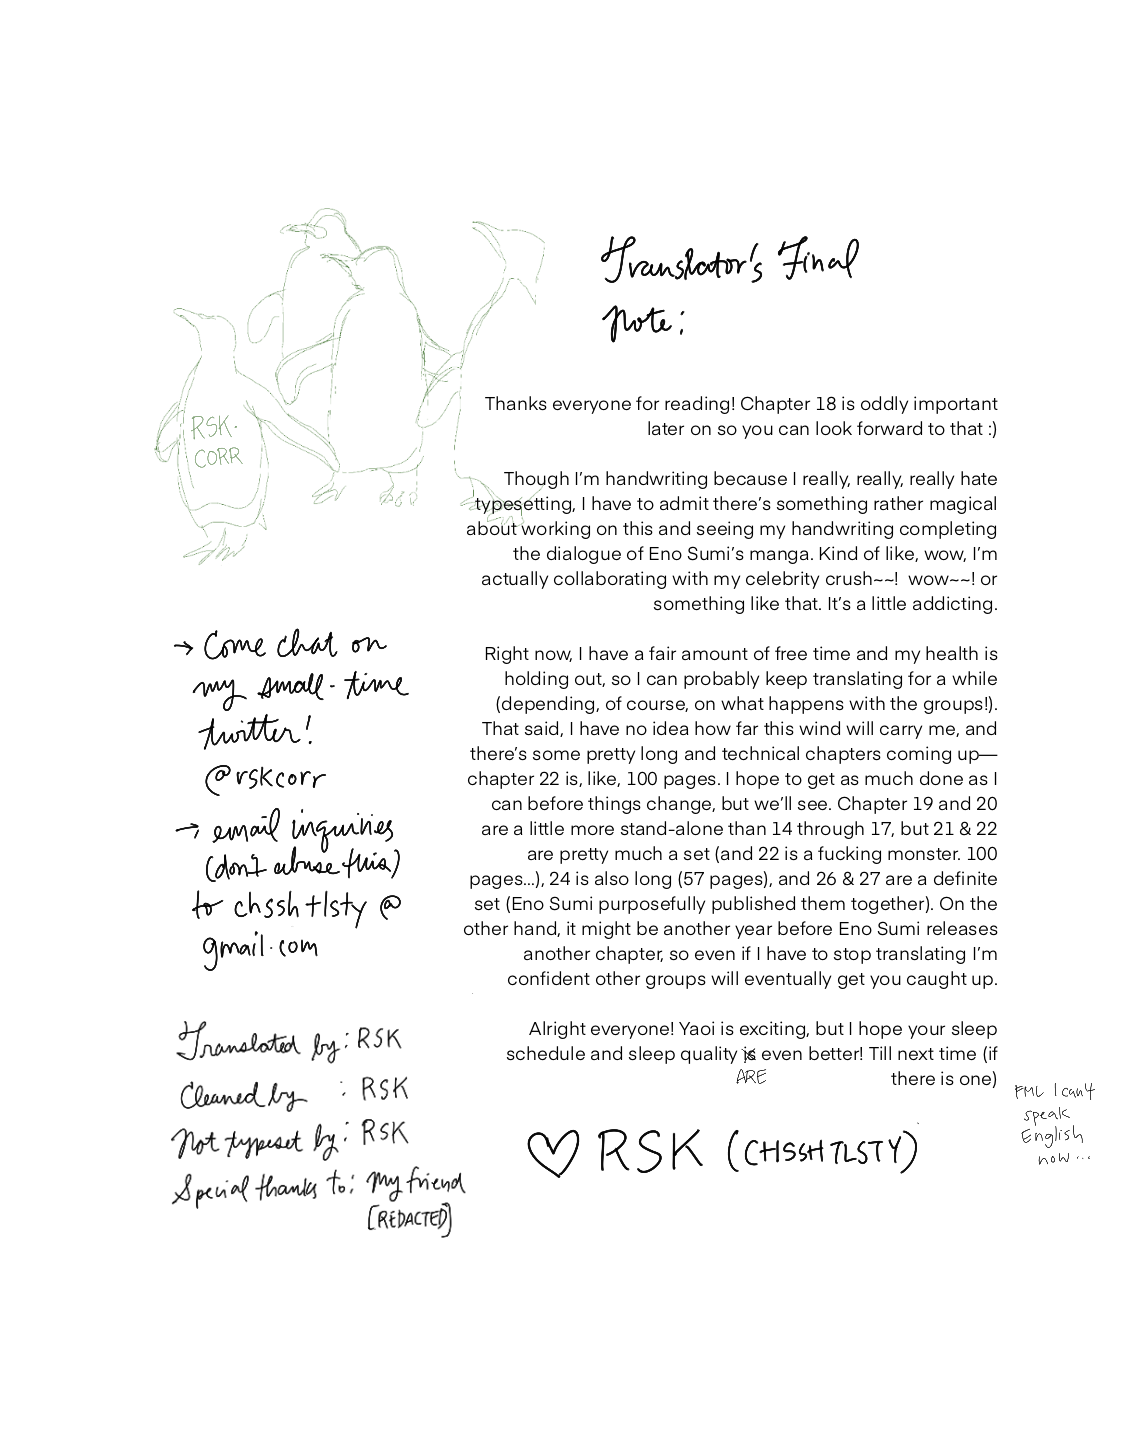 Translator's Final
Note:
RSK.
CORR
Thanks everyone for reading! Chapter 18 is oddly important
later on so you can look forward to that :)
Though I'm handwriting because I really, really, really hate
typesetting, I have to admit there's something rather magical
about working on this and seeing my handwriting completing
the dialogue of Eno Sumi's manga. Kind of like, wow, I'm
actually collaborating with my celebrity crush~~!  wow~~! or
something like that. It's a little addicting.
Right now, I have a fair amount of free time and my health is
holding out, so I can probably keep translating for a while
(depending, of course, on what happens with the groups!).
That said, I have no idea how far this wind will carry me, and
there's some pretty long and technical chapters coming up—
chapter 22 is, like, 100 pages. I hope to get as much done as I
can before things change, but we'll see. Chapter 19 and 20
are a little more stand-alone than 14 through 17, but 21 & 22
are pretty much a set (and 22 is a fucking monster. 100
pages...), 24 is also long (57 pages), and 26 & 27 are a definite
set (Eno Sumi purposefully published them together). On the
other hand, it might be another year before Eno Sumi releases
another chapter, so even if I have to stop translating I'm
confident other groups will eventually get you caught up.
Alright everyone! Yaoi is exciting, but I hope your sleep
schedule and sleep quality is even better! Till next time (if
ARE
there is one)
FML I can't
speak
English
now...
♡ RSK (CHSSHTLSTY)
→ Come chat on
my small-time
twitter!
@rskcorr
→ email inquiries
(don't abuse this)
to chsshtlsty @
gmail.com
Translated by: RSK
Cleaned by : RSK
Not typeset by: RSK
Special thanks to: My friend
[REDACTED]